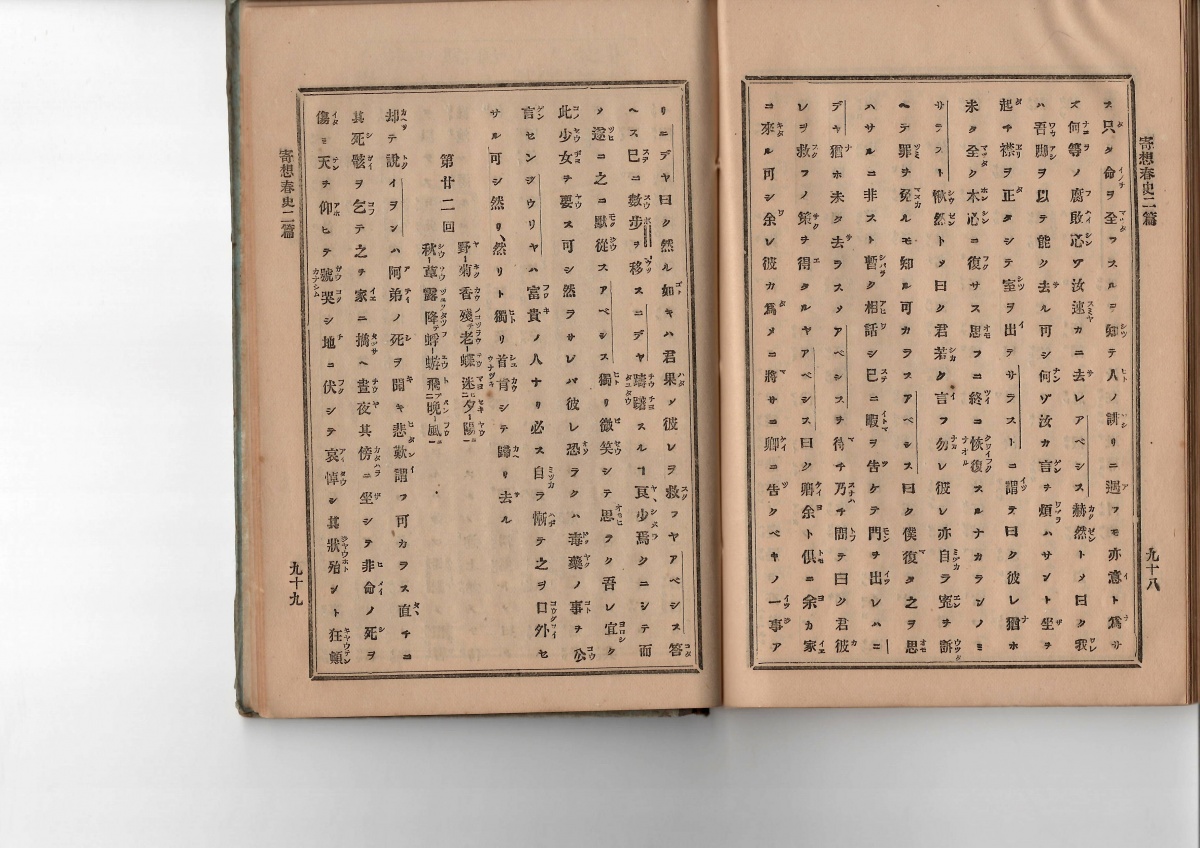 寄想春史二篇
九十八
ス只タ命ヲ全フスルヲ知テ人ノ誹リニ遇フモ亦意ト爲サ
ズ何等ノ腐敗心ゾ汝速カニ去レアベシス赫然トメ曰ク我
ハ吾脚ヲ以テ能ク去ル可シ何ゾ汝カ言ヲ煩ハサント坐ヲ
起チ襟ヲ正タシテ室ヲ出テサラストニ謂テ曰ク彼レ猶ホ
未タ全ク本心ニ復サス思フニ終ニ恢復スルナカランノミ
サラスト愀然トメ曰ク君若ク言フ勿レ彼レ亦自ラ寃ヲ訴
ヘテ罪ヲ免ルモ知ル可カラスアベシス曰ク僕復タ之ヲ思
ハサルニ非スト暫ク相話シ已ニ暇ヲ告ケテ門ヲ出レハニ
デヤ猶ホ未タ去ラスメアベシスヲ待チ乃チ問テ曰ク君彼
レヲ救フノ策ヲ得タルヤアベシス曰ク卿余ト俱ニ余カ家
ニ來ル可シ余レ彼カ爲メニ將サニ卿ニ告クベキノ一事ア
リニデヤ曰ク然ル如キハ君果メ彼レヲ救フヤアベシス答
ヘス已ニ數步ヲ移スニデヤ躊躇スルヿ良少焉クニシテ而
メ遂ニ之ニ默從スアベシス獨リ微笑シテ思ラク吾レ宜ク
此少女ヲ要ス可シ然ラサレバ彼レ恐ラクハ毒藥ノ事ヲ公
言センジウリヤハ富貴ノ人ナリ必ス自ラ慚テ之ヲ口外セ
サル可シ然リ、然リト獨リ首肯シテ歸リ去ル
第廿二回
野ー菊香殘テ老ー蝶迷ニ夕ー陽ニ
秋ー草露降テ蜉ー蝣飛ニ晩ー風ニ
却テ說イヲンハ阿弟ノ死ヲ聞キ悲歎謂フ可カラス直チニ
其死骸ヲ乞テ之ヲ家ニ携ヘ晝夜其傍ニ坐シテ非命ノ死ヲ
傷ミ天ヲ仰ヒテ號哭シ地ニ伏シテ哀悼シ其狀殆ント狂顚
寄想春史二篇
九十九